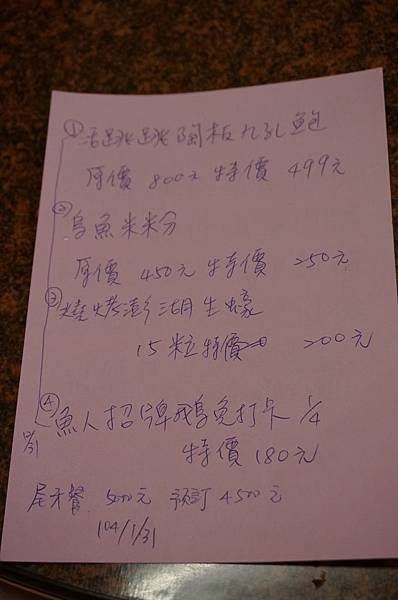 ① 活跳跳 鐵板九孔鮑
原價 800元 特價 499元
② 烏魚米粉
原價 450元 特價 250元
③ 燒烤澎湖生蠔
15粒特價 200元
④ 魚人招牌鵝免打卡 1/4
特價 180元
尾牙餐 5000元 預訂 4500元
104/1/31